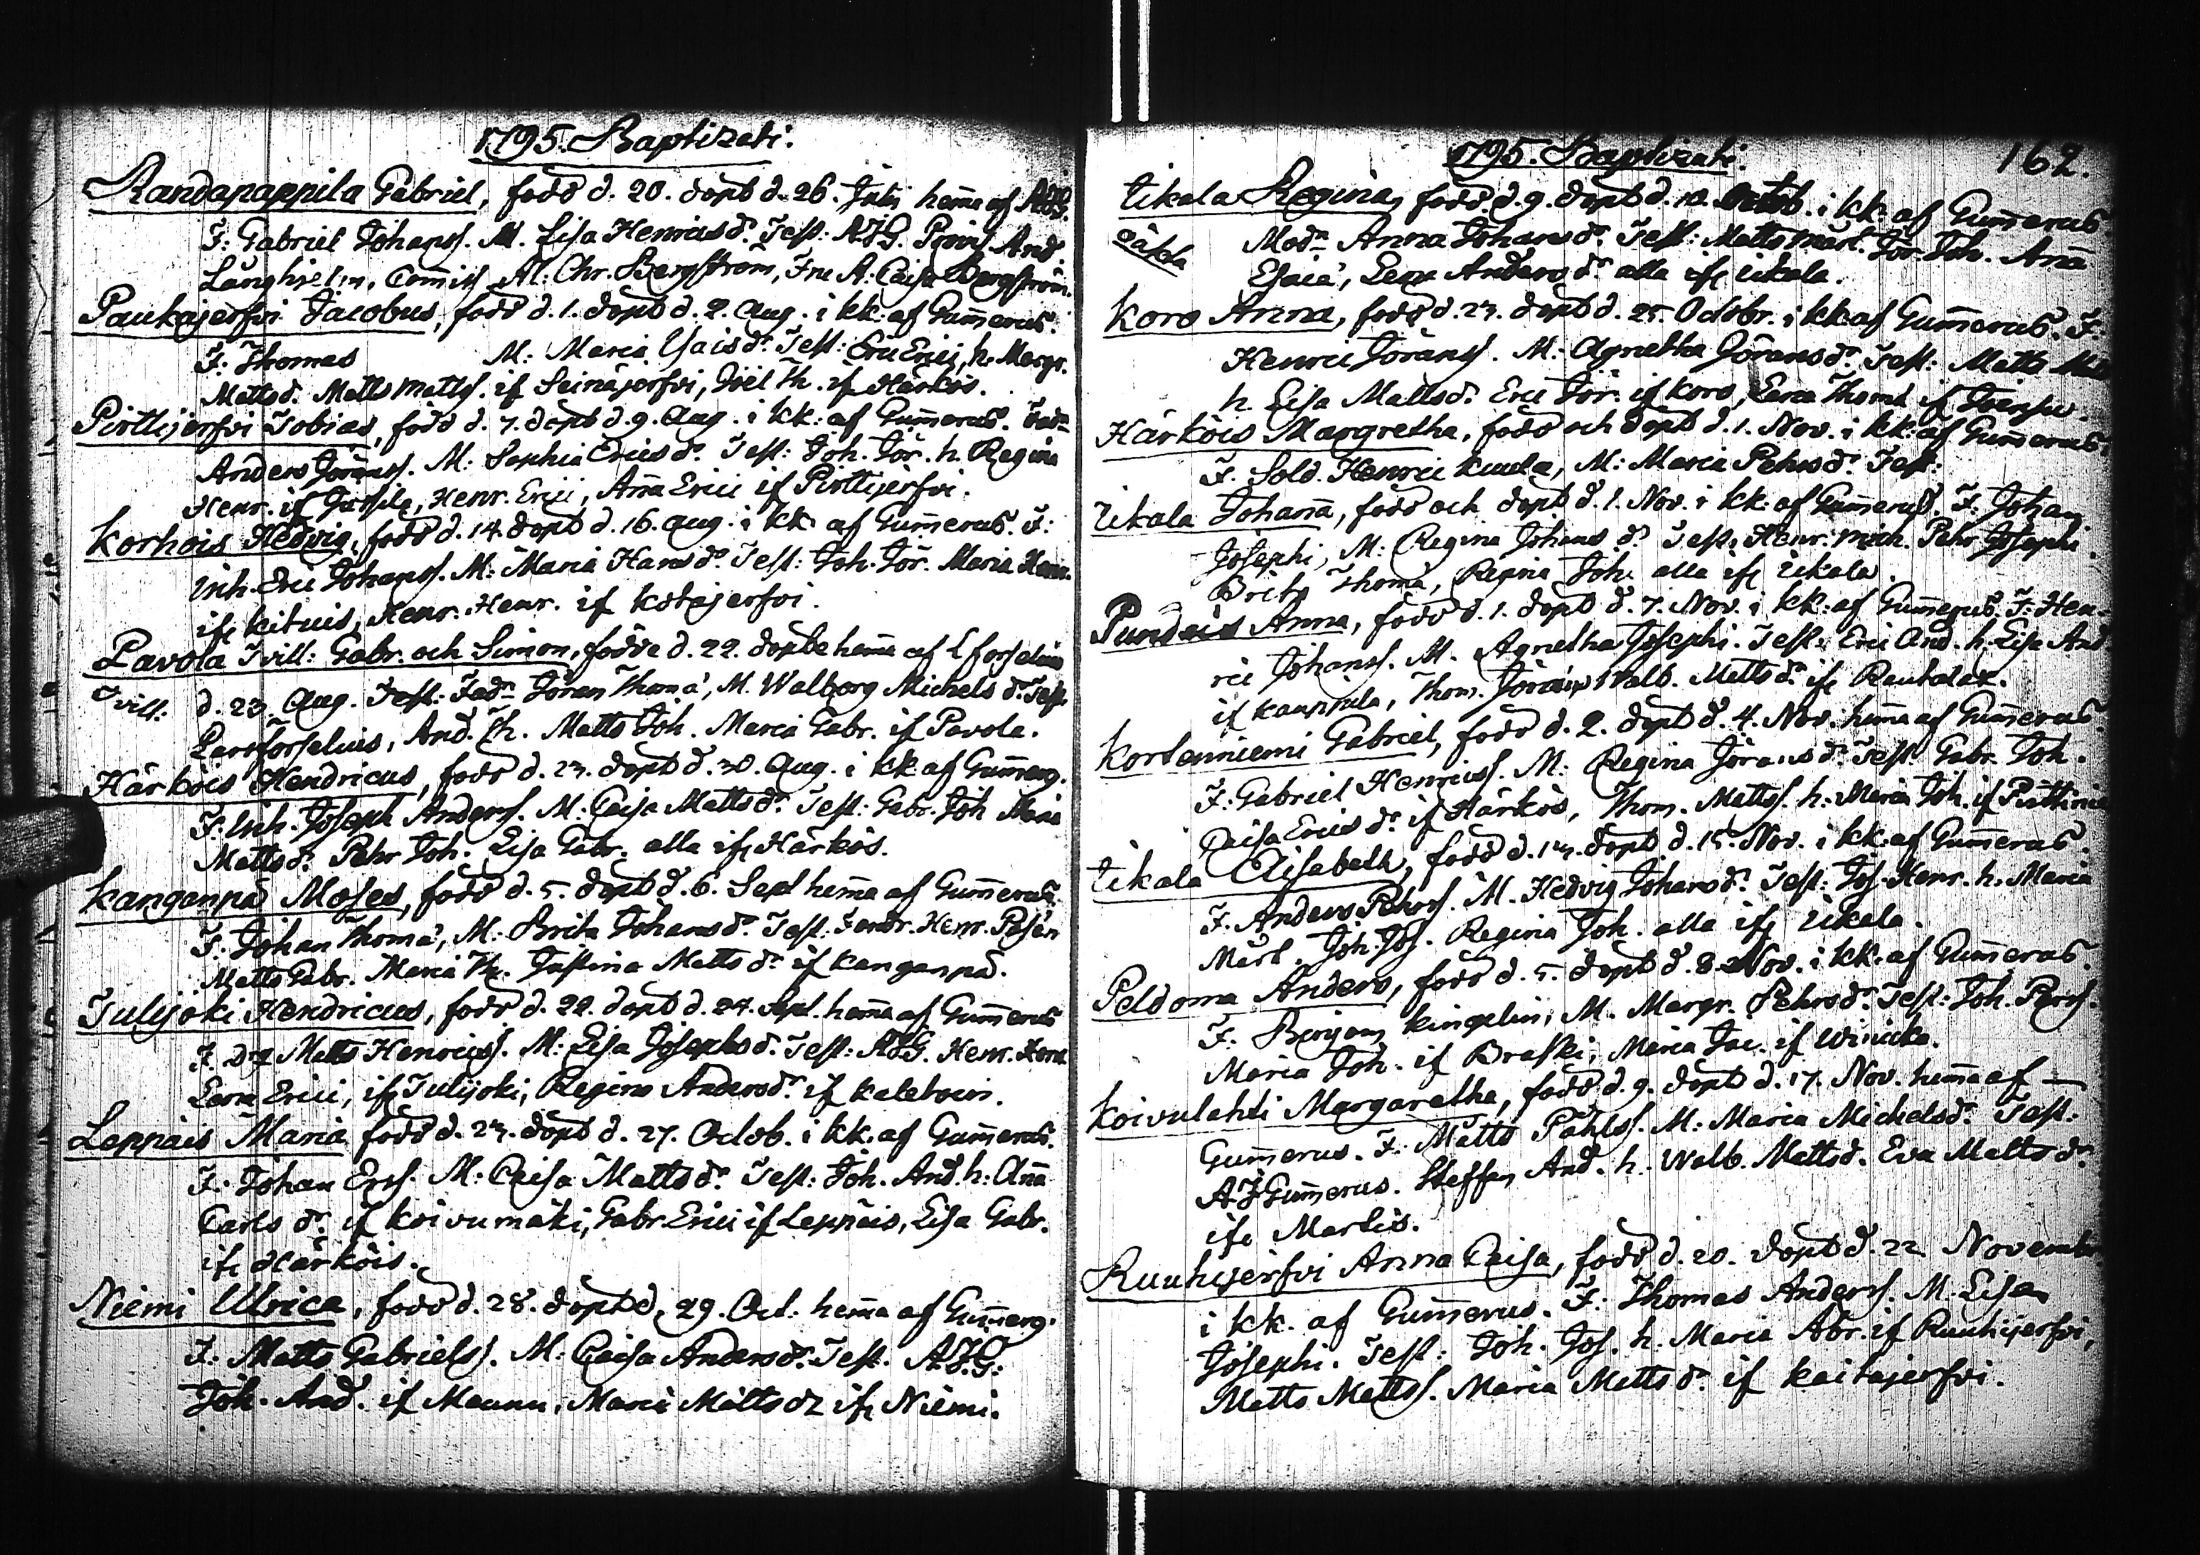 1795. Baptizati.
Randapappila Gabriel, född d. 20. döpt d. 26. Julij hema af
F: Gabriel Johanss. M. Lisa Henricsdr. Test: AJG. And.
Långhielm, Commiss Al. Chr. Bergström, Fru A. Caisa Bergström.
Paukajerfvi Jacobus, född d. 1. döpt d. 2. Aug. i kk. af Gummerus.
F. Thomas M: Maria Test: Eric Erici, h. Margr.
Mattsd. Matts Mattss. if Seinäjerfvi, Joel Th. if Härkös.
Pirttijerfvi Tobias, född d. 7. döpt d. 9. Aug. i kk. af Gummerus.
Anders Jöranss. M: Sophia Ericsdr. Test: Joh. Jör. h. Regina
Henr. if Henr. Erici, Anna Erici if Pirttijerfvi.
Korhois Hedvig, född d. 14. döpt d. 16. Aug. i kk af Gummerus. F:
Inh. Eric Johanss. M: Maria Hansdr. Test: Joh. Jör. Maria Henr.
ifr Kituis, Henr. Henr. if Kotajerfvi.
Pavola Tvill: Gabr. och Simon, födde d. 22. döpte hema af L forselius
Tvill: d. 23. Aug. Test: Fadr Jöran Thomæ, M. Walborg Michelsdr. Test.
Lars forselius, And. Th. Matts Joh. Maria Gabr. if Pavola.
Härköis Hendricus, född d. 23. döpt d. 30. Aug. i kk af Gummerg.
F. Inh. Joseph Anderss. M: Caisa Mattsdr. Test: Gabr. Joh Maria
Mattsdr. Pehr Joh. Lisa Gabr. alla ifr Härkös.
Kanganpä Moses, född d. 5. döpt d. 6. Sept hema af Gummerus
F: Johan Thomæ, M: Brita Johansdr. Test: Henr. Posén
Matts Gabr. Maria Th. Justina Mattsdr. if Kanganpä.
Julijoki Hendricus, född d. 22. döpt d. 24. Sept. hema af Gummerus
F. Matts Henricss. M: Lisa Josephsd. Test: AJG. Henr.
Lena Erici, ifr Julijoki, Regina Andersdr. if
Leppäis Maria född d. 23. döpt d. 27. Octob. i kk. af Gummerus.
F: Johan Ersf. M: Caisa Mattsdr. Test: Joh. And. h: Anna
Carlsdr. if Koivumäki, Gabr. Erici if Leppäis, Lisa Gabr.
ifr Härköis.
Niemi Ulrica, född d. 28. döpt d. 29. Oct. hema af Gummerg.
F: Matts Gabrielss. M: Caisa Andersdr. Test. AJG:
Joh. And. if Maunu, Maria Mattsdr ifr Niemi.
1795. Baptizati. 162.
Ukala Regina, född d. 9. döpt d. 10. Octob. i kk. af Gummerus
oäkta Modr Anna Johansdr. Test: Matts Mårt. Jör. Joh. Anna
Esaiæ, Lena Andersdr. alla ifr Ukala.
Koro Anna, född d. 23. döpt d. 25. Octobr. i kk af Gummerus. F:
Henric Jöranss. M: Agnetha Jöransdr. Test: Matts
h. Lisa Mattsd. Eric Jör. if Koro, Lena Thomæ if
Härköis Margretha, född och döpt d. 1. Nov. i kk: af Gummerus,
F. Sold. Henric Kuula, M: Maria Pehrsdr. Test:
Ukala Johanna, född och döpt d. 1. Nov. i kk. af Gummerus. F. Johan
Josephi, M: Regina Johansdr. Test: Henr. Mich. Pehr Josephi.
Brita Thomæ, Regina Joh. alla ifr Ukala.
Pundois Anna, född d. 1. döpt d. 7. Nov. i kk: af Gummerus. F: Hen-
ric Johanss. M. Agnetha Josephi. Test: Eric And. h. Lisa And.
if Kauppila, Thom. Jöranss Walb. Mattsdr. ifr Rautalax.
Kortenniemi Gabriel, född d. 2. döpt d. 4. Nov. hema af Gummerus.
F: Gabriel Henricss. M: Regina Jöransdr. Test: Gabr. Joh.
Caisa Ericsdr. if Härkös, Thom. Mattss. h: Maria Joh. if
Ukala Elisabeth, född d. 13. döpt d. 15. Nov. i kk. af Gummerus.
F. Anders Pehrss. M. Hedvig Johansdr. Test: Jos. Henr. h. Maria
Mårt. Joh. Jos. Regina Joh. alla ifr Ukala.
Peldoma Anders, född d. 5. döpt d. 8. Nov. i kk. af Gummerus.
F: Kingelin, M. Margr. Pehrsdr. Test: Joh. Perss.
Maria Joh. if Braski, Maria Jac. if Winicka.
Koivulahti Margaretha, född d. 9. döpt d. 17. Nov. hema af
Gummerus. F: Matts Påhlss. M: Maria Michelsdr. Test:
AJGummerus. Steffan And. h. Walb. Mattsd. Eva Mattsdr.
ifr Martis.
Ruuhijerfvi Anna Caisa, född d. 20. döpt d. 22 November
i kk. af Gummerus. F: Thomas Anderss. M. Lisa
Josephi. Test: Joh. Jos. h. Maria Abr. if Ruuhijerfvi,
Matts Mattss. Maria Mattsdr. if Kaitajerfvi.